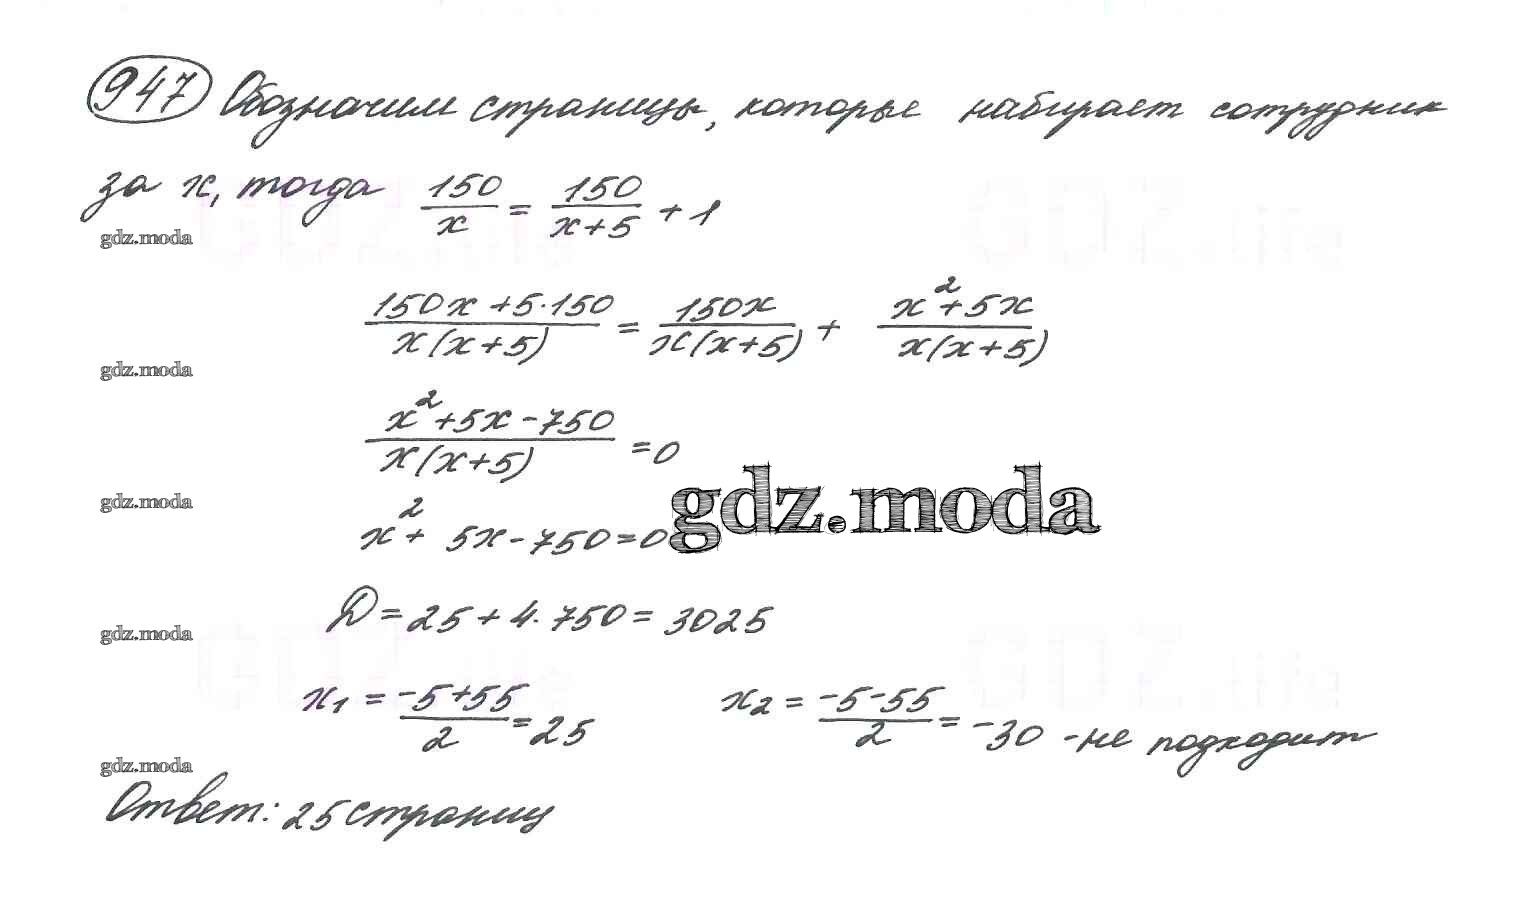 947 Обозначим страницы, которые набирает сотрудник
за x, тогда 150/x = 150/(x+5) + 1
gdz.moda
(150x + 5·150)/(x(x+5)) = 150x/(x(x+5)) + (x²+5x)/(x(x+5))
gdz.moda
(x²+5x-750)/(x(x+5)) = 0
gdz.moda
gdz.moda
x² + 5x - 750 = 0
D = 25 + 4·750 = 3025
gdz.moda
x₁ = (-5+55)/2 = 25 x₂ = (-5-55)/2 = -30 - не подходит
gdz.moda
Ответ: 25 страниц
GDZ.life
GDZ.life
GDZ.life
GDZ.life